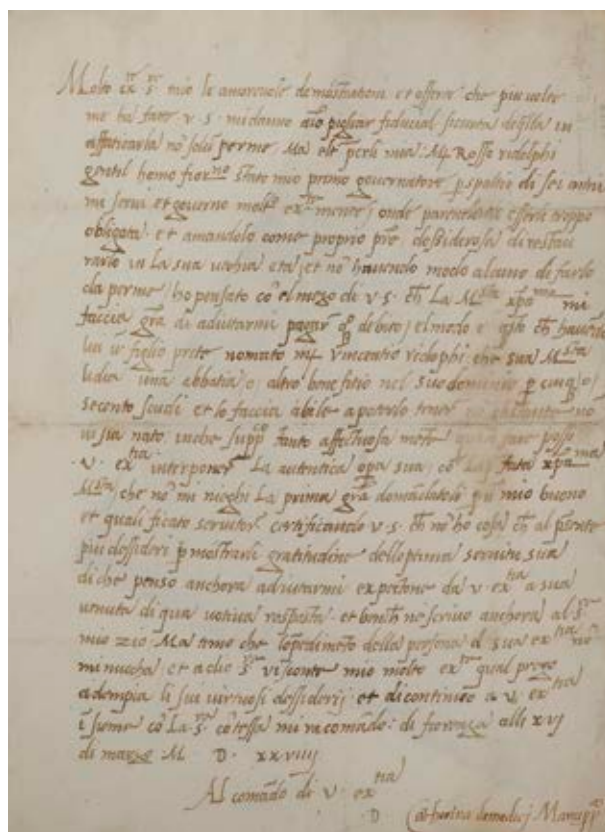 Molto ex.te S.re mio le amorevole demostrationi et offerte che piu volte
me ha fate v. s. mi danno aĩo pigliar fiducial sicurta de q̃lla in
affaticarla nõ solũ per me Ma et per li mia: M. Rosso ridolphi
gentil homo fior.no stato mio primo governatore p spatio di sei anni
mi servi et governo molto ex.te mente; onde parendomi esserli troppo
obligata et amandolo come proprio pr̃e, dessiderosa di restau
rarlo in la sua vechia eta; et nõ havendo modo alcuno de farlo
da per me; ho pensato cõ el mezo di v. s. ch̃ La M.sta xp̃a.ma mi
faccia gr̃a di adiutarmi pagar debito; el modo e ch̃ havendo
lui ũ figlio prete nomato m. vincentio ridolphi, che sua M.sta
li dia una abbatia o, altro benefitio nel suo dominio p cinq o,
secento scudi et lo faccia abile a poterlo tener nõ
vi sia nato, inche supp.co tanto affectuosa mẽte posso
v. ex.tia interponer La autentica opa sua, cõ xp̃a.ma
M.sta che nõ mi neghi La prima gr̃a mio buono
et qualificato servitor certificando v. s. ch̃ nõ ho cosa ch̃ al p̃ente
piu dessideri p mostrarli gratitudine servitu sua
di che penso anchora adiutarmi da v. ex.tia a sua
venuta di qua votiva resposta. et bench̃ ne scrivo anchora al S.re
mio zio Ma temo che della persona d. sua ex.tia nõ
mi et adio S.re visconte mio molto ex.te qual prego
adempia li sui virtuosi dessiderij et di continuo a v. ex.tia
ĩsieme cõ La S.ra cõtessa mi racomãdo: di fiorenza alli xvj
di marzo M. D. xxviiij
Al comãdo di v. ex.tia
D. Catherina de medicj